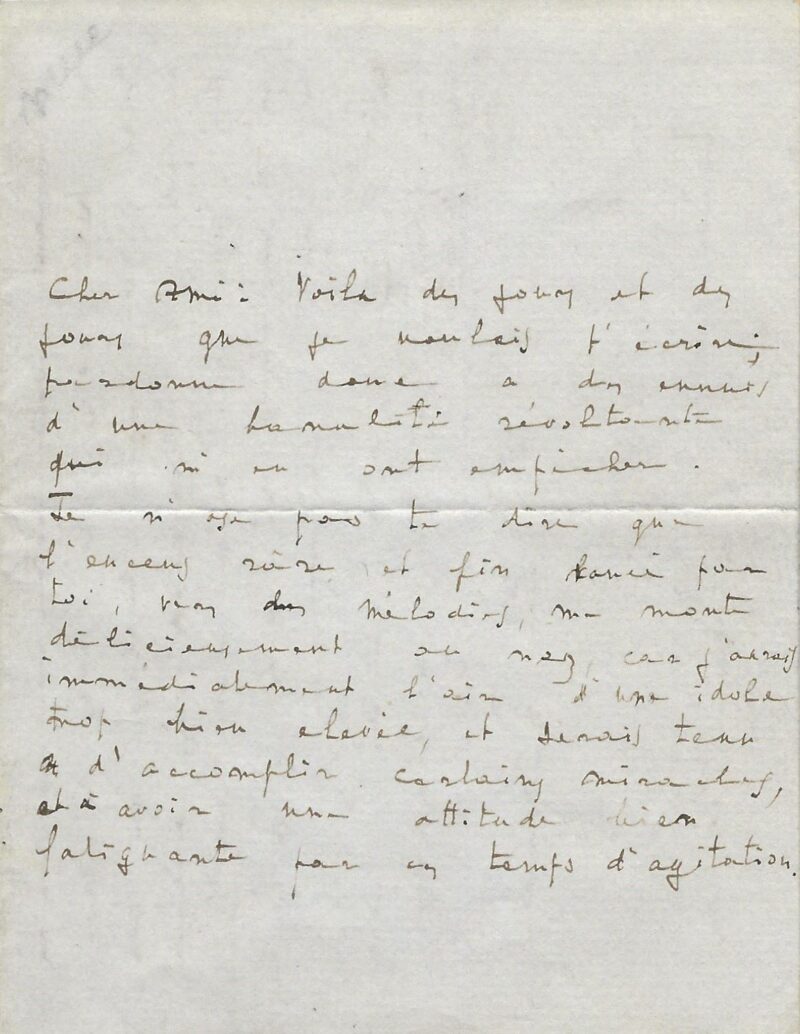 Cher Ami : Voila des jours et des
jours que je voulais t'écrire,
pardonne donc a des ennuis
d'une banalité révoltante
qui m'en ont empêcher.
Je n'ose pas te dire que
l'encens rare et fin lancé par
toi, vers des mélodies, me monte
délicieusement au nez, car j'aurais
immédiatement l'air d'une idole
trop bien elevée, et serais tenu
a d'accomplir certains miracles,
et à avoir une attitude bien
fatiguante par ces temps d'agitation.